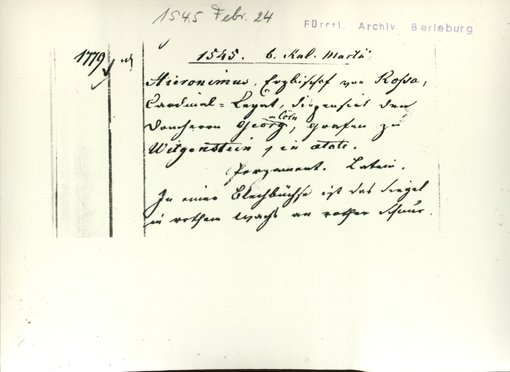 1545 Febr. 24
Fürstl. Archiv Berleburg
1779
1545. 6. Kal. Martii
Hieronimus, Erzbischof von Rossa,
Cardinal-Legat, dispensirt den
Domherrn Georg, in Cöln Grafen zu
Witgenstein in aetate.
Pergament. Latein.
In einer Blechbüchse ist das Siegel
in rothem Wachs an rother Schnur.